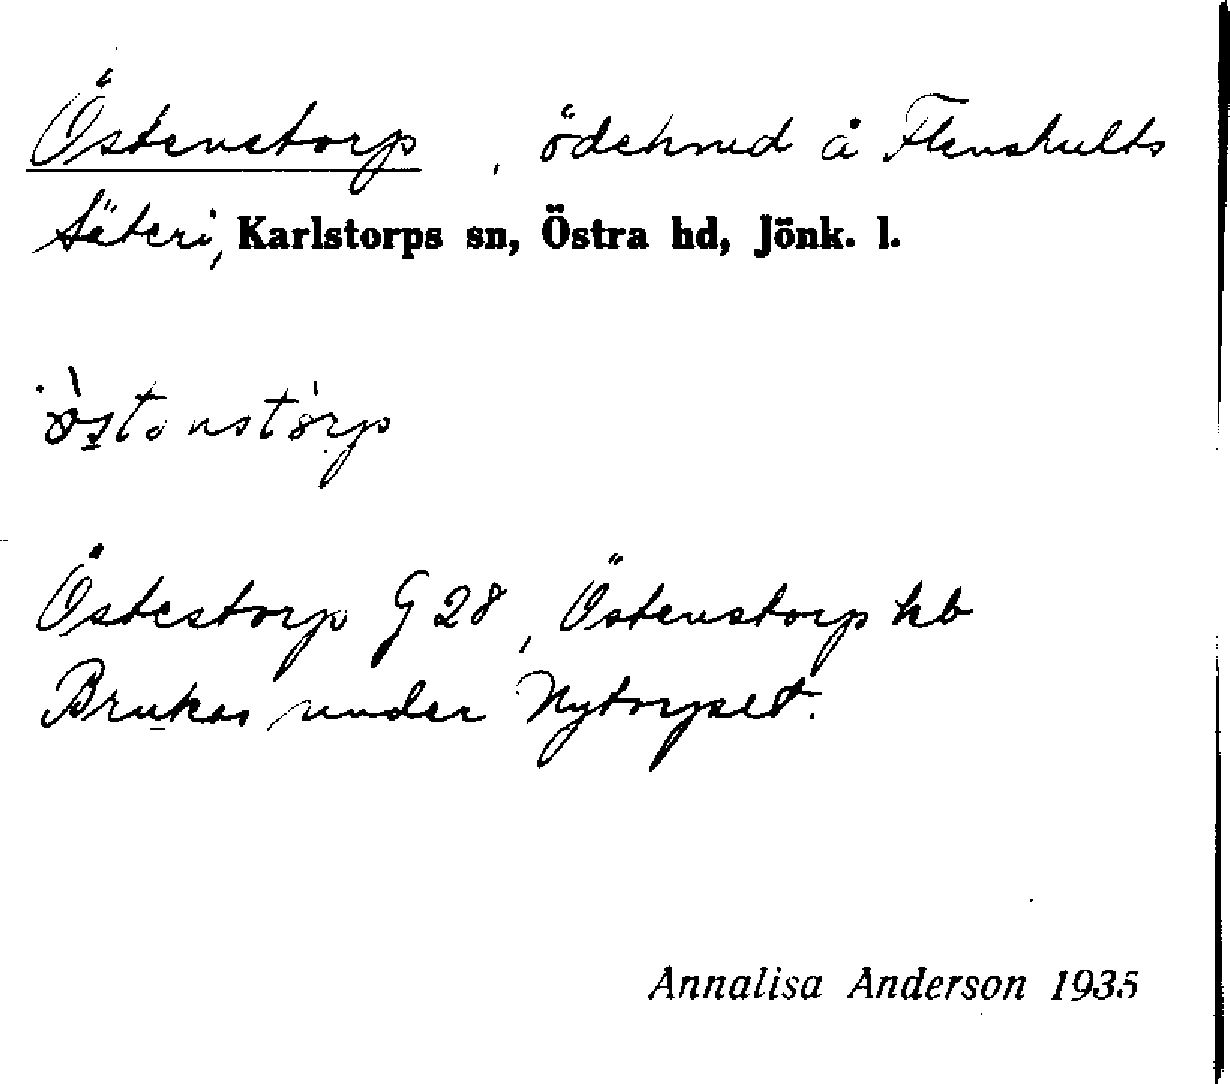 Östenstorp, ödehmd å Flenshults
Säteri, Karlstorps sn, Östra hd, Jönk. l.
östenstorp
Östestorp G 28, Östenstorp kb
Brukas under Nytorpset.
Annalisa Anderson 1935